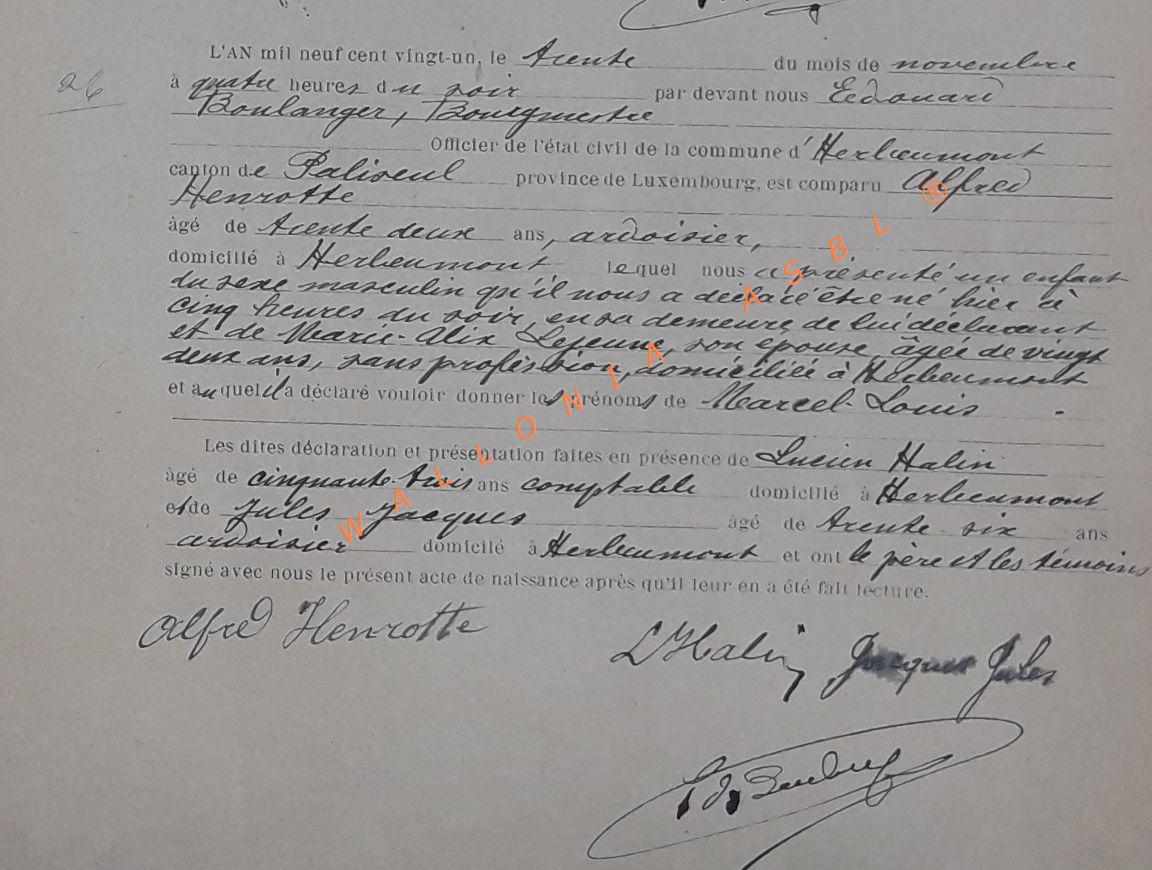 26
L'AN mil neuf cent vingt-un, le trente du mois de novembre
à quatre heures du soir par devant nous Edouard
Boulanger, Bourgmestre
Officier de l'état civil de la commune d'Herbeumont
canton de Paliseul province de Luxembourg, est comparu Alfred
Henrotte
âgé de trente deux ans, ardoisier,
domicilié à Herbeumont lequel nous a présenté un enfant
du sexe masculin qu'il nous a déclaré être né hier à
cinq heures du soir, en sa demeure, de lui déclarant
et de Marie-Alix Lejeune, son épouse, âgée de vingt
deux ans, sans profession, domiciliée à Herbeumont
et auquel il a déclaré vouloir donner les prénoms de Marcel-Louis
Les dites déclaration et présentation faites en présence de Lucien Halin
âgé de cinquante-trois ans comptable domicilié à Herbeumont
et de Jules Jacques âgé de trente six ans
ardoisier domicilé à Herbeumont et ont le père et les témoins
signé avec nous le présent acte de naissance après qu'il leur en a été fait lecture.
Alfred Henrotte
L Halin Jacques Jules
WALLONIA ASBL ®